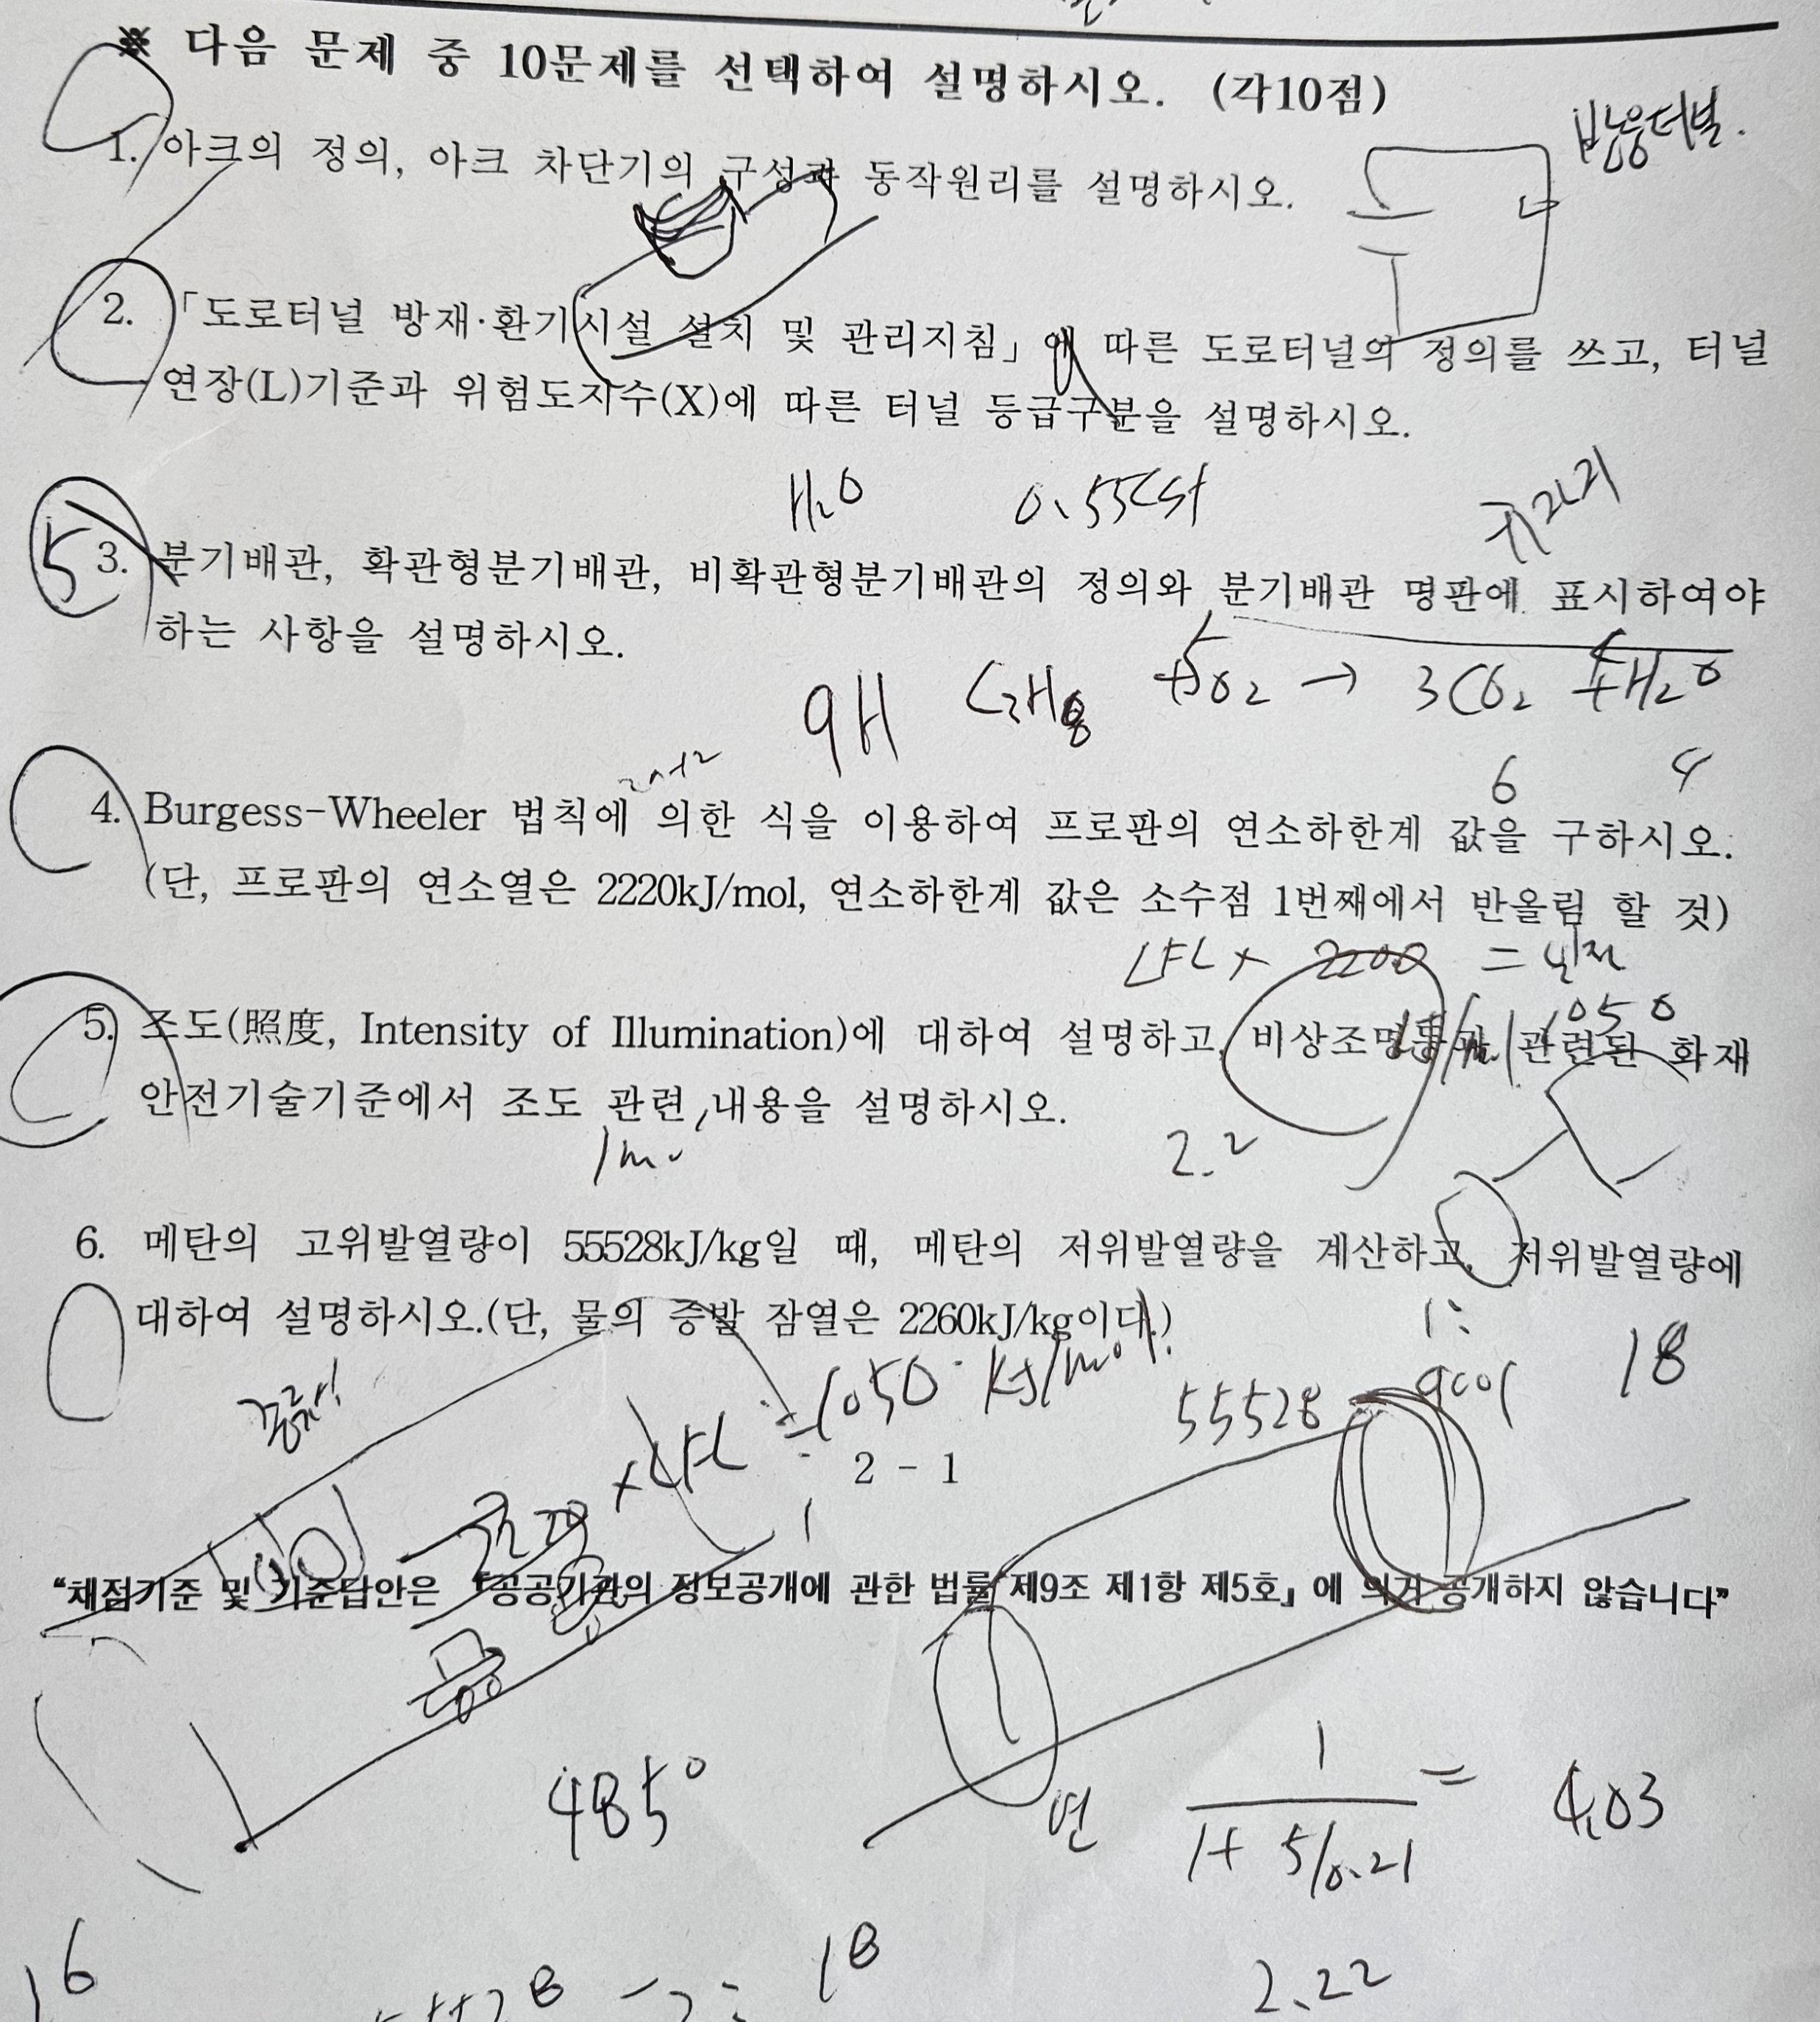 ※ 다음 문제 중 10문제를 선택하여 설명하시오. (각10점)
반응터널.
1. 아크의 정의, 아크 차단기의 구성과 동작원리를 설명하시오.
2. 「도로터널 방재·환기시설 설치 및 관리지침」에 따른 도로터널의 정의를 쓰고, 터널
연장(L)기준과 위험도지수(X)에 따른 터널 등급구분을 설명하시오.
H₂O 0.55cst
5
3. 분기배관, 확관형분기배관, 비확관형분기배관의 정의와 분기배관 명판에 표시하여야
하는 사항을 설명하시오.
9H C₃H₈ +5O₂ → 3CO₂ +H₂O
2n+2
6 4
4. Burgess-Wheeler 법칙에 의한 식을 이용하여 프로판의 연소하한계 값을 구하시오.
(단, 프로판의 연소열은 2220kJ/mol, 연소하한계 값은 소수점 1번째에서 반올림 할 것)
LFL × 2200 =
1050
5. 조도(照度, Intensity of Illumination)에 대하여 설명하고, 비상조명등과 관련된 화재
안전기술기준에서 조도 관련 내용을 설명하시오.
2.2
6. 메탄의 고위발열량이 55528kJ/kg일 때, 메탄의 저위발열량을 계산하고, 저위발열량에
대하여 설명하시오.(단, 물의 증발 잠열은 2260kJ/kg이다.)
× LFL = 1050 kJ/mol
55528
18
2 - 1
“채점기준 및 기준답안은 『공공기관의 정보공개에 관한 법률 제9조 제1항 제5호』에 의거 공개하지 않습니다”
485°
연 1
1+ 5/0.21 = 4.03
16
18
2.22